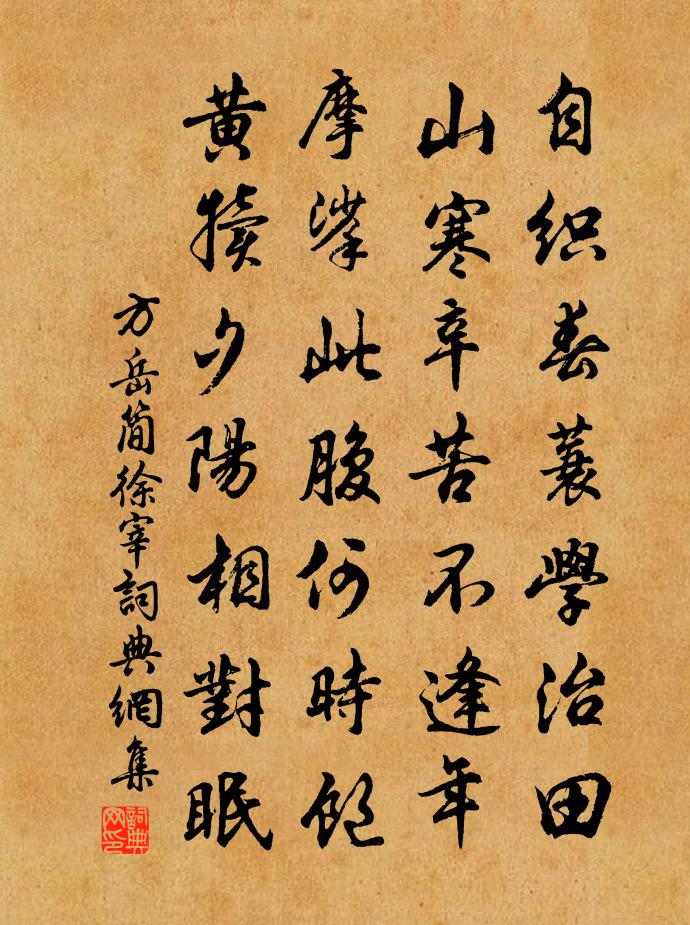 自织春蓑學治田
山寒辛苦不逢年
摩挲此腹何時飽
黃犢夕陽相對眠
方岳簡徐宰詞典網集
詞典网印